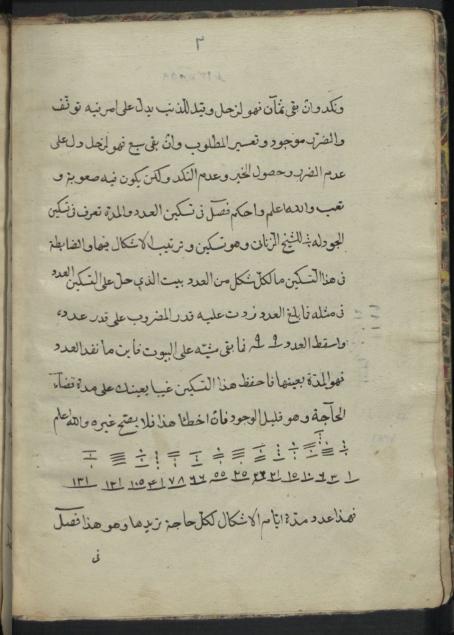 ٣
ونكد وان بقى ثمان فهو لزحل وقيد للذنب يدل على امر فيه توقف
والضرر موجود وتعسير المطلوب وان بقى سبع فهو لزحل دل على
عدم الضرر وحصول الخير وعدم النكد ولكن يكون فيه صعوبة و
تعب والله اعلم واحكم فصل فى تسكين العدد والمدة تعرف فى تسكين
الجودله للشيخ الزناتى وهو تسكين وترتيب الاشكال فيها والضابطة
فى هذا التسكين ما لكل شكل من العدد ببيت الذي حل على التسكين العدد
فى مثله فا بلغ العدد زدت عليه قدر المضروب على قدر عدده
واسقط العدد ٩ ٩ فا بقى مشيه على البيوت فاين ما نفد العدد
فهو المدة بعينها فاحفظ هذا التسكين غيبا يعينك على مدة قضاء
الحاجة وهو قليل الوجود فان اخطأ هذا فلا يصح غيره والله اعلم
١ ٣ ٦ ١٠ ١٥ ٢١ ٥٥ ٦٦ ٧٨ ١٠٥ ١٣١
فهذا عدد مدة ايام الاشكال لكل حاجة تريدها وهو هذا فصل
فى